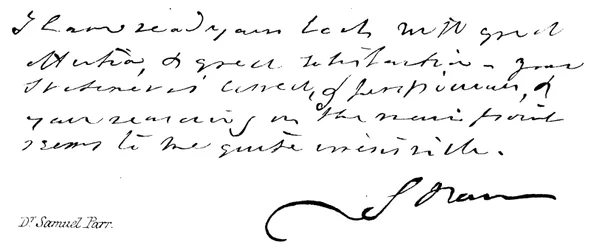 I have read your book with great
attention, & great satisfaction – your
statement is correct, & perspicuous, &
your reasoning on the main point
seems to me quite irresistible.
S Parr
Dr. Samuel Parr.